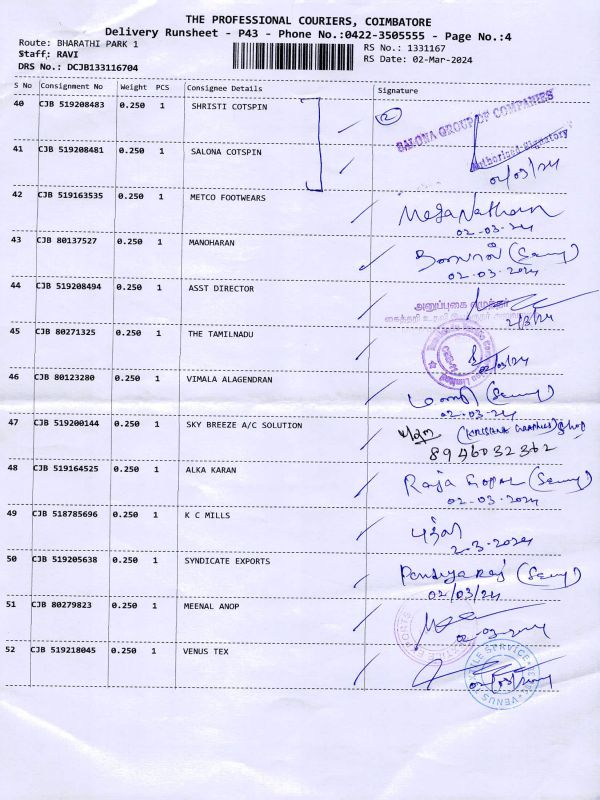 THE PROFESSIONAL COURIERS, COIMBATORE
Delivery Runsheet - P43 - Phone No.:0422-3505555 - Page No.:4
Route: BHARATHI PARK 1 RS No.: 1331167
Staff: RAVI RS Date: 02-Mar-2024
DRS No.: DCJB133116704
S No Consignment No Weight PCS Consignee Details Signature
40 CJB 519208483 0.250 1 SHRISTI COTSPIN 2 SALONA GROUP OF COMPANIES
Authorised Signatory
41 CJB 519208481 0.250 1 SALONA COTSPIN 02/03/24
42 CJB 519163535 0.250 1 METCO FOOTWEARS
02-03-24
43 CJB 80137527 0.250 1 MANOHARAN
02-03-2024
44 CJB 519208494 0.250 1 ASST DIRECTOR
2/3/24
45 CJB 80271325 0.250 1 THE TAMILNADU 02/03/24
46 CJB 80123280 0.250 1 VIMALA ALAGENDRAN
02-03-24
47 CJB 519200144 0.250 1 SKY BREEZE A/C SOLUTION
8946032362
48 CJB 519164525 0.250 1 ALKA KARAN Raja Gopal
02-03-2024
49 CJB 518785696 0.250 1 K C MILLS
2-3-2024
50 CJB 519205638 0.250 1 SYNDICATE EXPORTS
02/03/24
51 CJB 80279823 0.250 1 MEENAL ANOP
02-03-2024
52 CJB 519218045 0.250 1 VENUS TEX